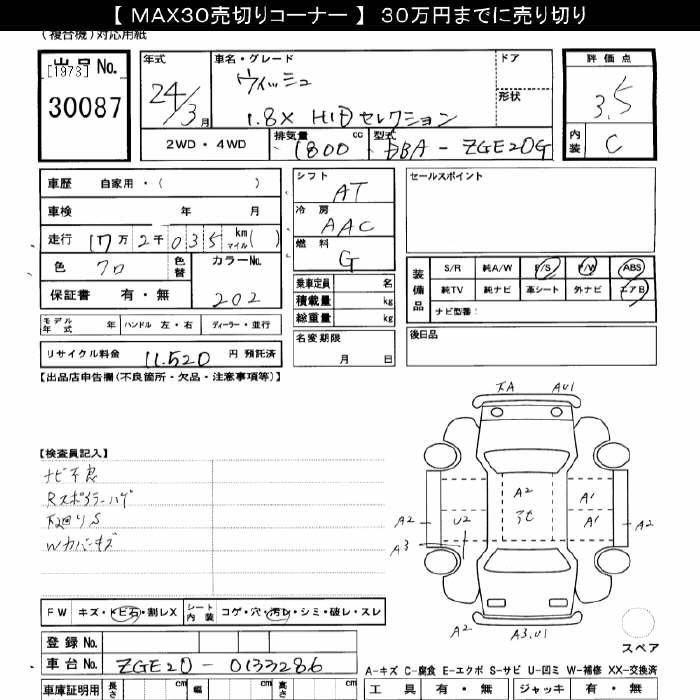 【 MAX30売切りコーナー 】 30万円までに売り切り
(複合機)対応用紙
出品 No. [1973]
30087
年式 24/3月
車名・グレード ウィッシュ
1.8X HIDセレクション
ドア
形状
評価点 3.5
内装 C
2WD・4WD
排気量 1800 cc
型式 DBA - ZGE20G
車歴 自家用・( )
車検 年 月
走行 17万2千035 km マイル( )
色 クロ
色替
カラーNo. 202
保証書 有・無
シフト AT
冷房 AAC
燃料 G
乗車定員 名
積載量 kg
総重量 kg
セールスポイント
装備品
S/R 純A/W P/S P/W ABS
純TV 純ナビ 革シート 外ナビ エアB
ナビ型番:
モデル年式 年 ハンドル 左・右 ディーラー・並行
名変期限
月 日
後日品
リサイクル料金 11.520 円 預託済
【出品店申告欄(不良箇所・欠品・注意事項等)】
【検査員記入】
ナビ不良
Rスポイラーハゲ
下廻りS
Wカバーキズ
A A/U1
A2 U2 A2 A1 A1 A2
A3
A2 A3.U1
スペア
FW キズ・トビ石・割レX
シート内装 コゲ・穴・汚レ・シミ・破レ・スレ
登録 No.
車台 No. ZGE20 - 0133286
A-キズ C-腐食 E-エクボ S-サビ U-凹ミ W-補修 XX-交換済
車庫証明用 長さ cm 幅 cm 高さ cm
工具 有・無 ジャッキ 有・無